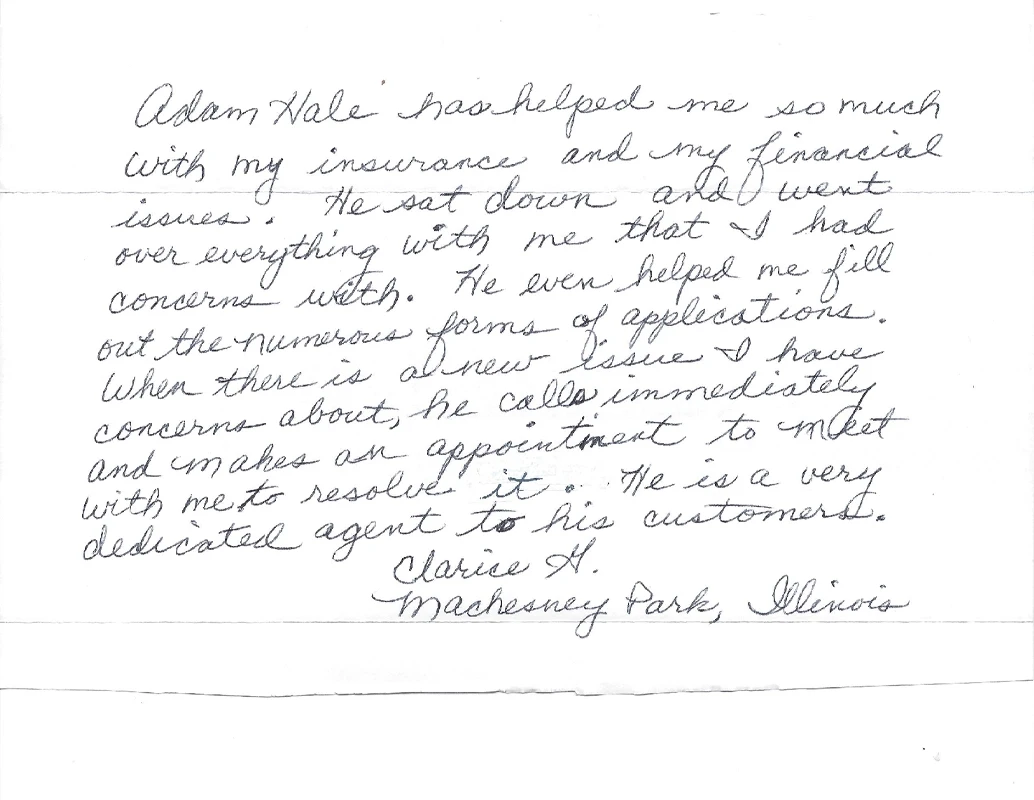 Adam Hale has helped me so much
with my insurance and my financial
issues. He sat down and went
over everything with me that I had
concerns with. He even helped me fill
out the numerous forms of applications.
When there is a new issue I have
concerns about, he calls immediately
and makes an appointment to meet
with me to resolve it. He is a very
dedicated agent to his customers.
Clarice H.
Machesney Park, Illinois